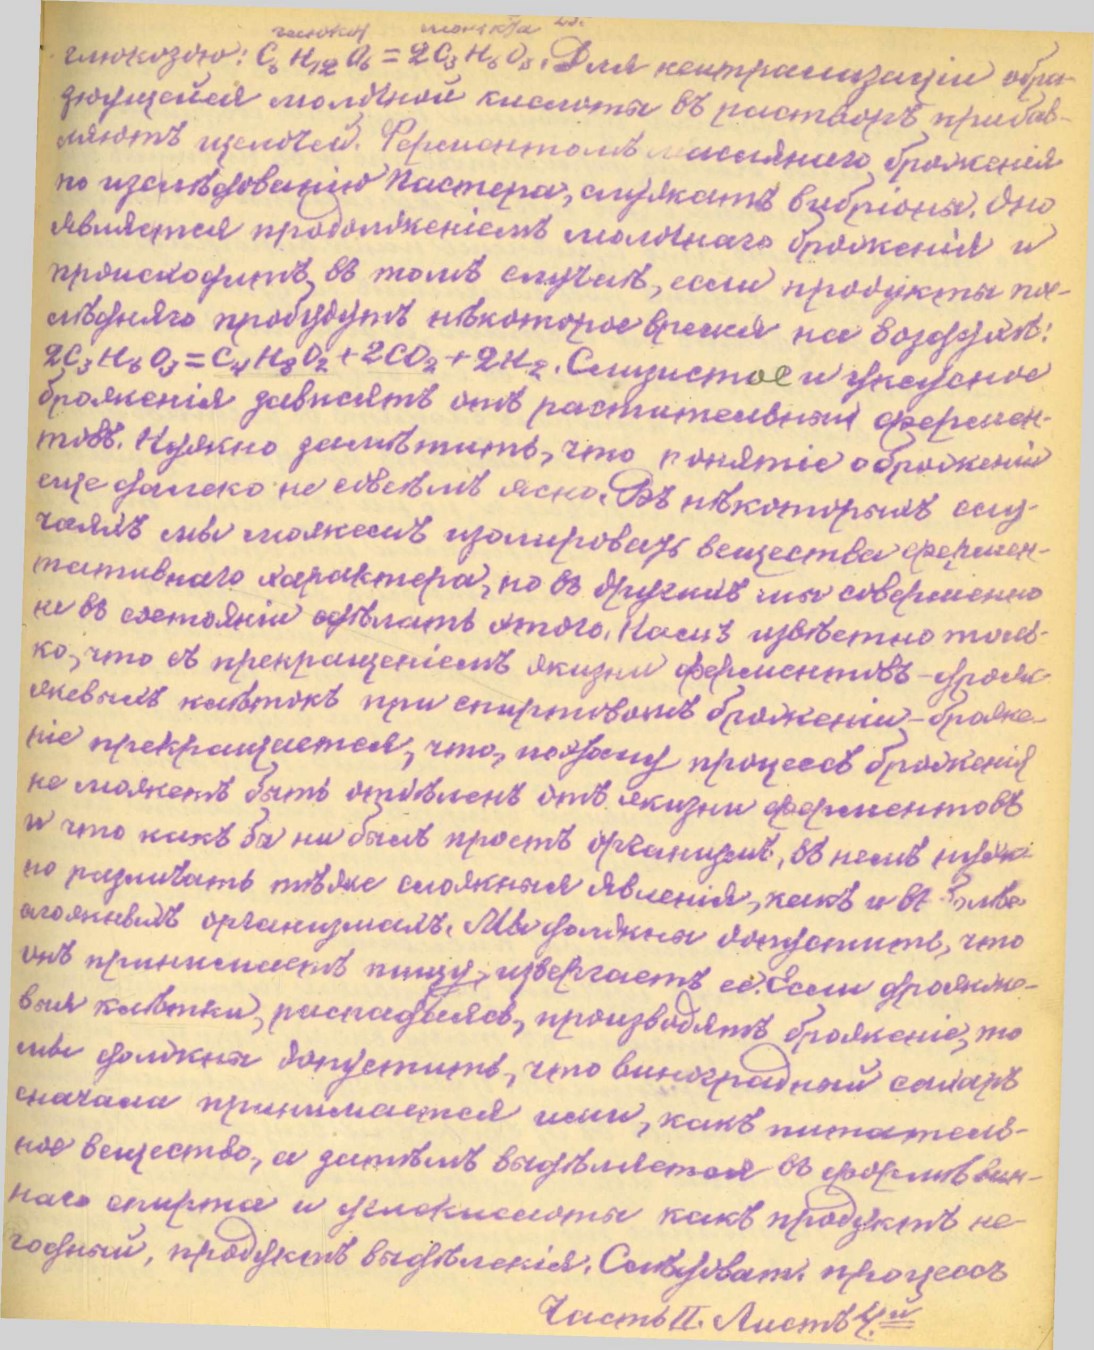 глюкоза молочн. к-та
глюкозою: C₆H₁₂O₆ = 2C₃H₆O₃. Для нейтрализаціи обра-
зующейся молочной кислоты въ растворъ прибав-
ляютъ щелочей. Ферментомъ маслянаго броженія
по изслѣдованію Пастера, служатъ вибріоны. Оно
является продолженіемъ молочнаго броженія и
происходитъ въ томъ случаѣ, если продукты пос-
лѣдняго пробудутъ нѣкоторое время на воздухѣ:
2C₃H₆O₃ = C₄H₈O₂ + 2CO₂ + 2H₂. Слизистое и уксусное
броженія зависятъ отъ растительныхъ фермен-
товъ. Нужно замѣтить, что понятіе о броженіи
еще далеко не совсѣмъ ясно. Въ нѣкоторыхъ слу-
чаяхъ мы можемъ изолировать вещества фермен-
тативнаго характера, но въ другихъ мы совершенно
не въ состояніи сдѣлать этого. Намъ извѣстно толь-
ко, что съ прекращеніемъ жизни ферментовъ - дрож-
жевыхъ клѣтокъ при спиртовомъ броженіи - броже-
ніе прекращается, что, поэтому процессъ броженія
не можетъ быть отдѣленъ отъ жизни ферментовъ
и что какъ бы ни былъ простъ организмъ, въ немъ нуж-
но различать тѣже сложныя явленія, какъ и въ болѣе
сложныхъ организмахъ. Мы должны допустить, что
онъ принимаетъ пищу, извергаетъ ее. Если дрожже-
выя клѣтки, распадаясь, производятъ броженіе, то
мы должны допустить, что виноградный сахаръ
сначала принимается ими, какъ питатель-
ное вещество, а затѣмъ выдѣляется въ формѣ вин-
наго спирта и углекислоты какъ продуктъ не-
годный, продуктъ выдѣленія. Слѣдоват. процессъ
Часть II. Листъ 4.й